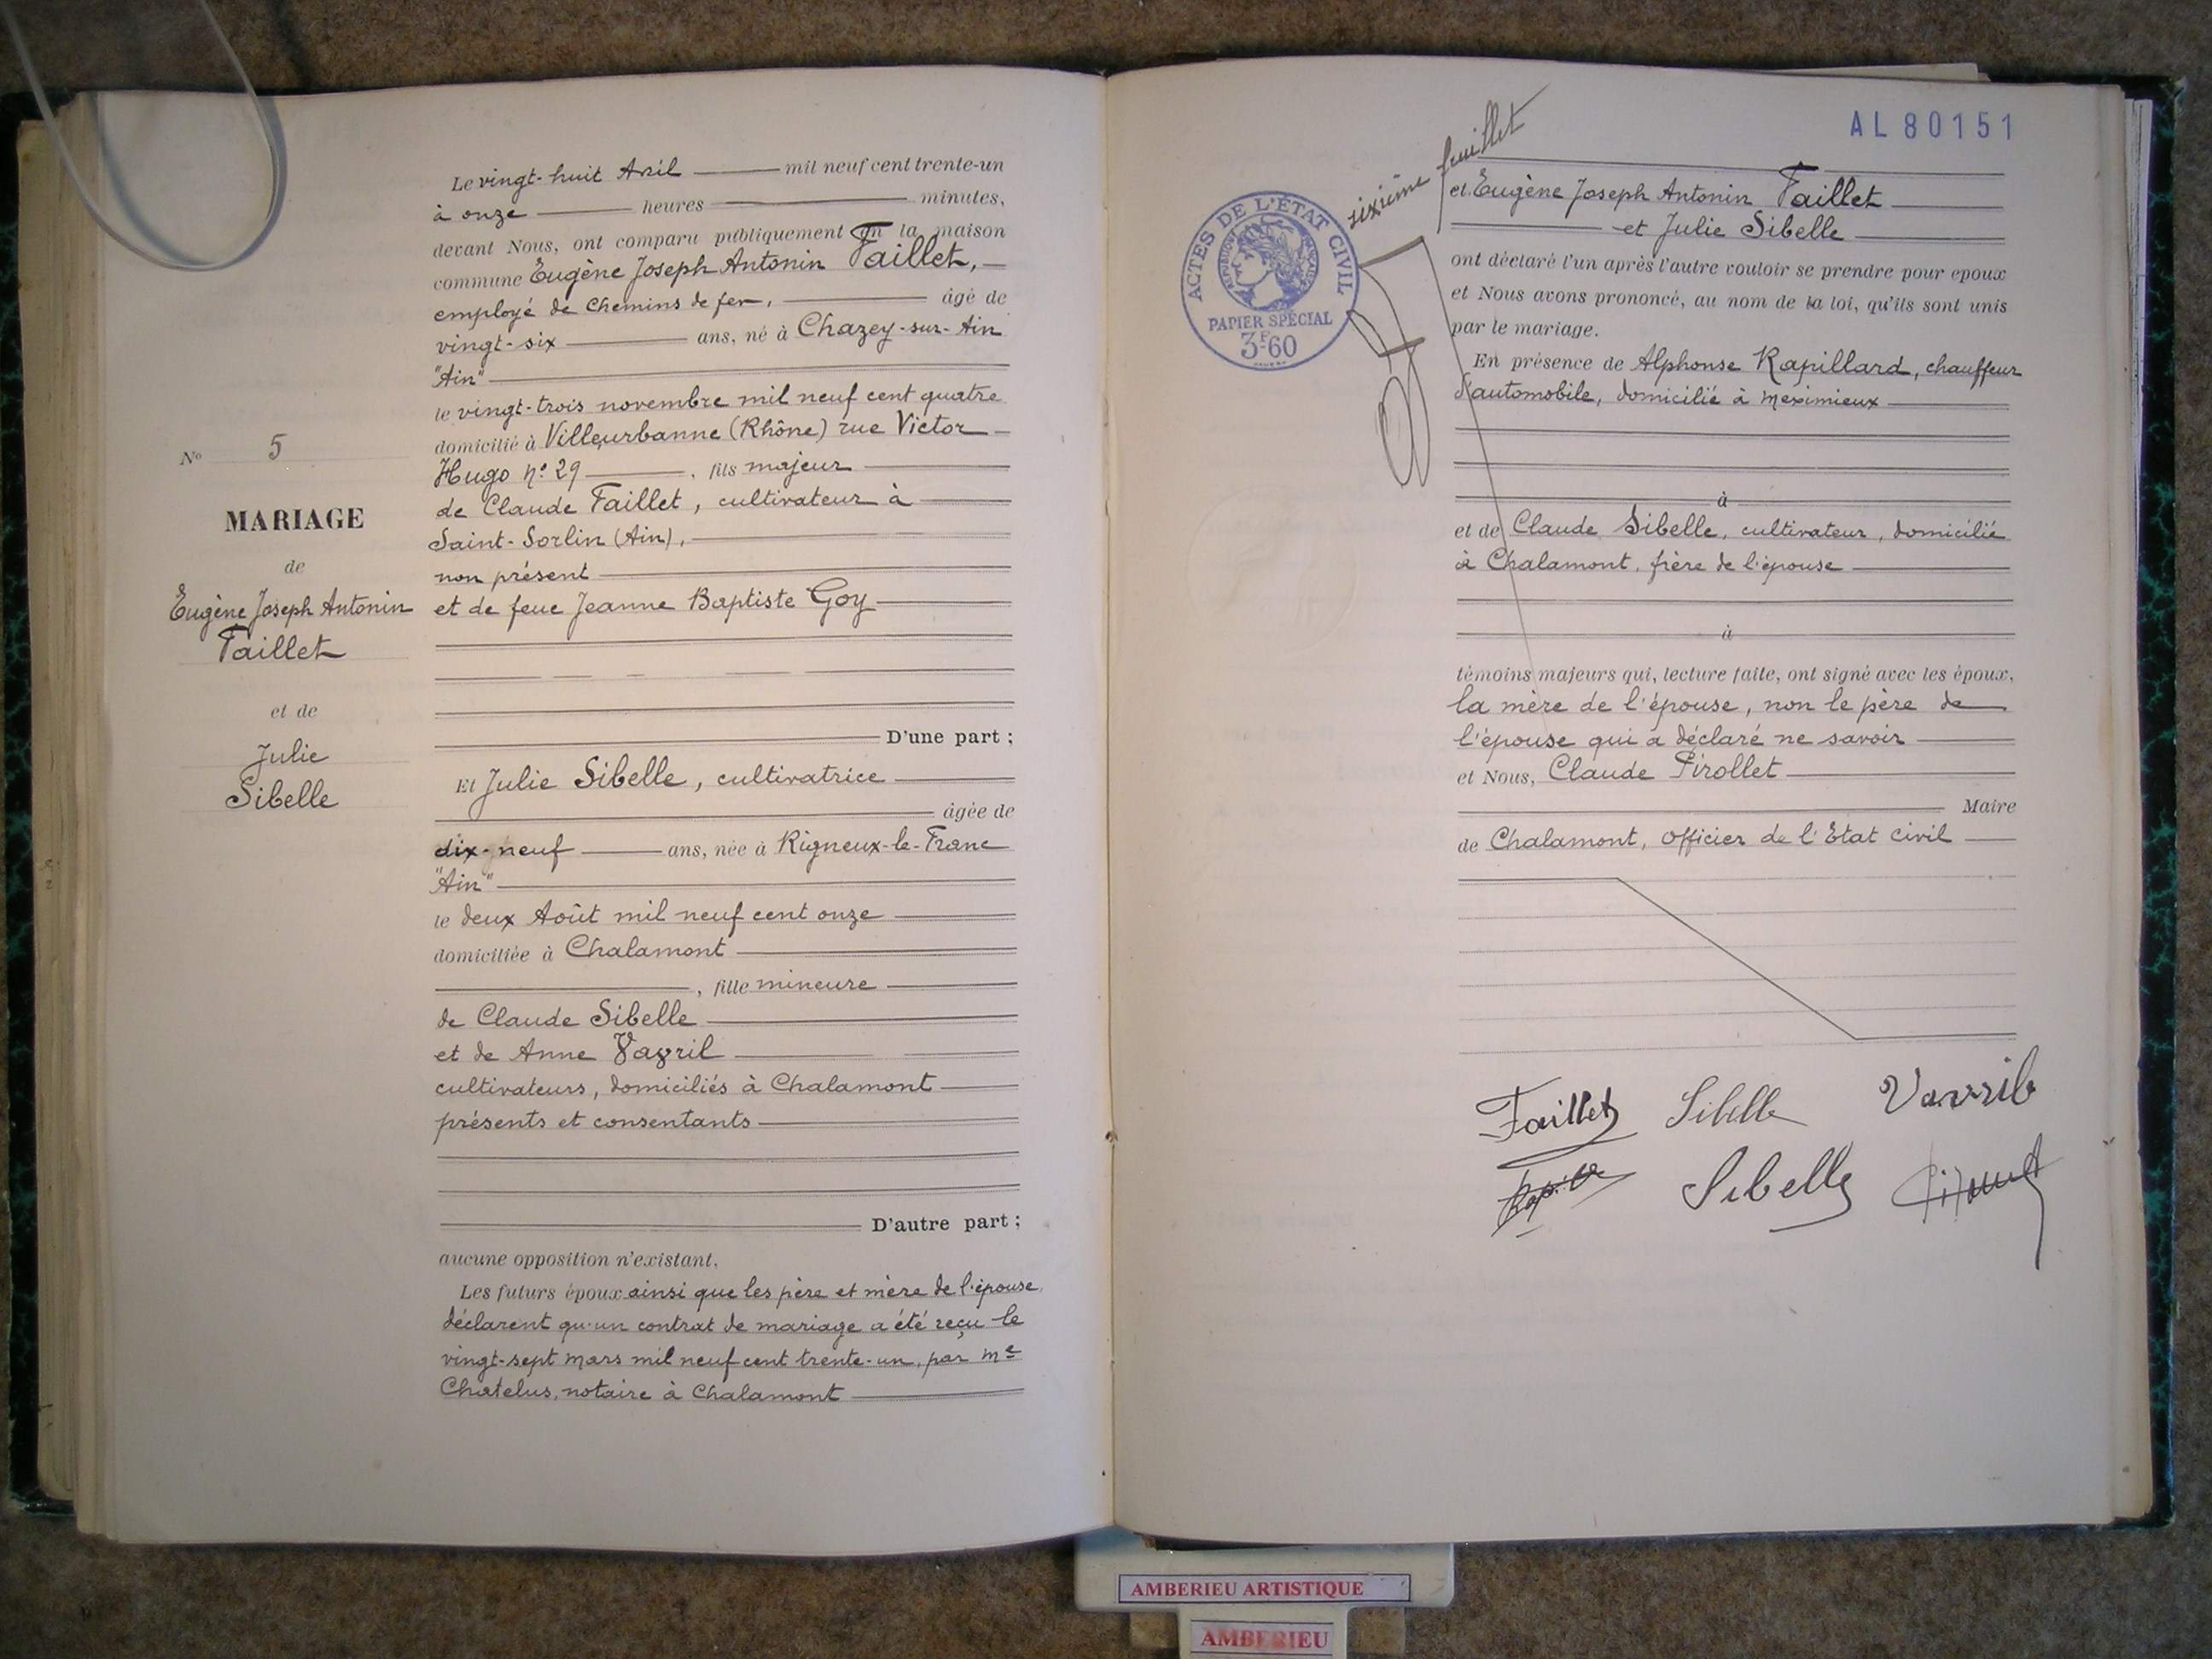 Le vingt-huit Avril mil neuf cent trente-un
à onze heures minutes,
devant Nous, ont comparu publiquement en la maison
commune Eugène Joseph Antonin Faillet,
employé de Chemins de fer, âgé de
vingt-six ans, né à Chazey-sur-Ain
"Ain"
le vingt-trois novembre mil neuf cent quatre
domicilié à Villeurbanne (Rhône) rue Victor
Hugo n° 29, fils majeur
de Claude Faillet, cultivateur à
Saint-Sorlin (Ain),
non présent
et de feue Jeanne Baptiste Goy
D'une part ;
Et Julie Sibelle, cultivatrice
âgée de
dix-neuf ans, née à Rigneux-le-Franc
"Ain"
le deux Août mil neuf cent onze
domiciliée à Chalamont
, fille mineure
de Claude Sibelle
et de Anne
cultivateurs, domiciliés à Chalamont
présents et consentants
D'autre part ;
aucune opposition n'existant.
Les futurs époux ainsi que les père et mère de l'épouse,
déclarent qu'un contrat de mariage a été reçu le
vingt-sept mars mil neuf cent trente-un, par Me
Chatelus, notaire à Chalamont
No 5
MARIAGE
de
Eugène Joseph Antonin
Faillet
et de
Julie
Sibelle
AL 80151
sixième feuillet
ACTES DE L'ÉTAT CIVIL
PAPIER SPÉCIAL
3F60
et Eugène Joseph Antonin Faillet
et Julie Sibelle
ont déclaré l'un après l'autre vouloir se prendre pour epoux
et Nous avons prononcé, au nom de la loi, qu'ils sont unis
par le mariage.
En présence de Alphonse Rapillard, chauffeur
d'automobile, domicilié à Meximieux
à
et de Claude Sibelle, cultivateur, domicilié
à Chalamont, frère de l'épouse
à
témoins majeurs qui, lecture faite, ont signé avec les époux,
la mère de l'épouse, non le père de
l'épouse qui a déclaré ne savoir
et Nous, Claude Pirollet
Maire
de Chalamont, Officier de l'Etat Civil
Faillet Sibelle
Sibelle
AMBERIEU ARTISTIQUE
AMBERIEU